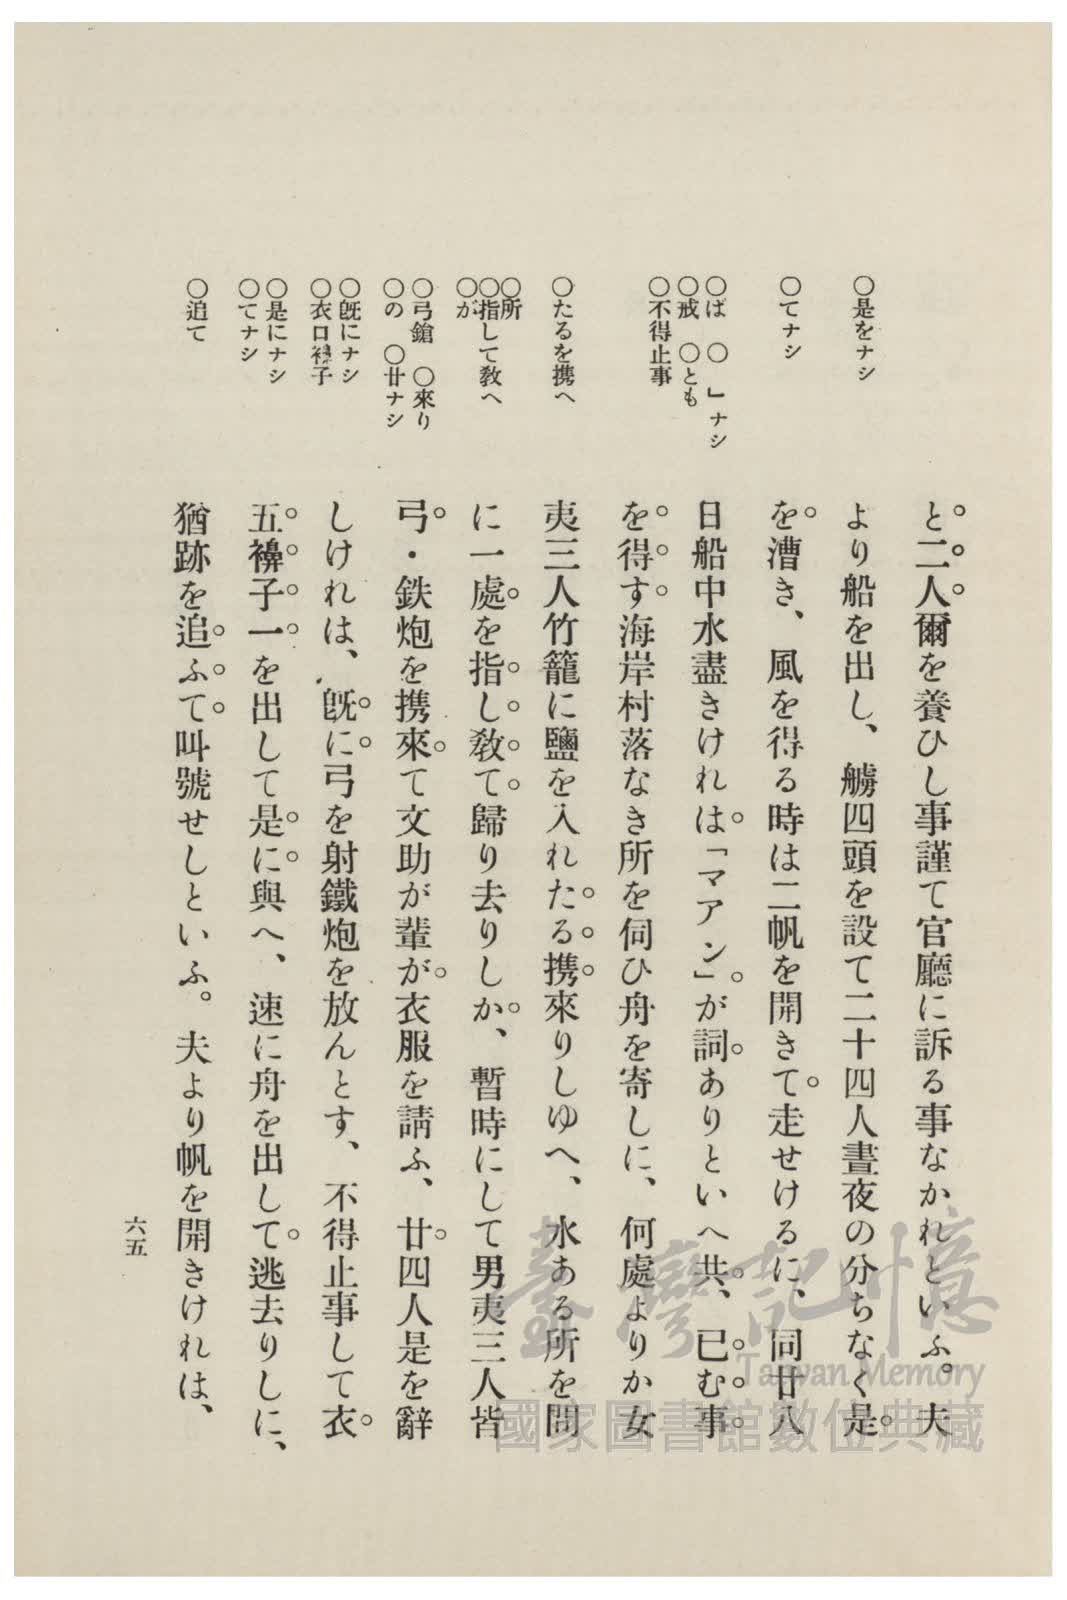 ○是をナシ
○てナシ
○ば　○　」ナシ
○戒　○とも
○不得止事
○たるを携へ
○所
○指して教へ
○が
○弓鎗　○來り
○の　○廿ナシ
○既にナシ
○衣口襷子
○是にナシ
○てナシ
○追て
と二人爾を養ひし事謹て官廳に訴る事なかれといふ。夫
より船を出し、艣四頭を設て二十四人晝夜の分ちなく是
を漕き、風を得る時は二帆を開きて走せけるに、同廿八
日船中水盡きけれは「マアン」が詞ありといへ共、已む事
を得す海岸村落なき所を伺ひ舟を寄しに、何處よりか女
夷三人竹籠に鹽を入れたる携來りしゆへ、水ある所を問
に一處を指し教て歸り去りしか、暫時にして男夷三人皆
弓・鉄炮を携來て文助が輩が衣服を請ふ、廿四人是を辭
しけれは、既に弓を射鐵炮を放んとす、不得止事して衣
五襷子一を出して是に與へ、速に舟を出して逃去りしに、
猶跡を追ふて叫號せしといふ。夫より帆を開きけれは、
六五
臺灣記憶
Taiwan Memory
國家圖書館數位典藏